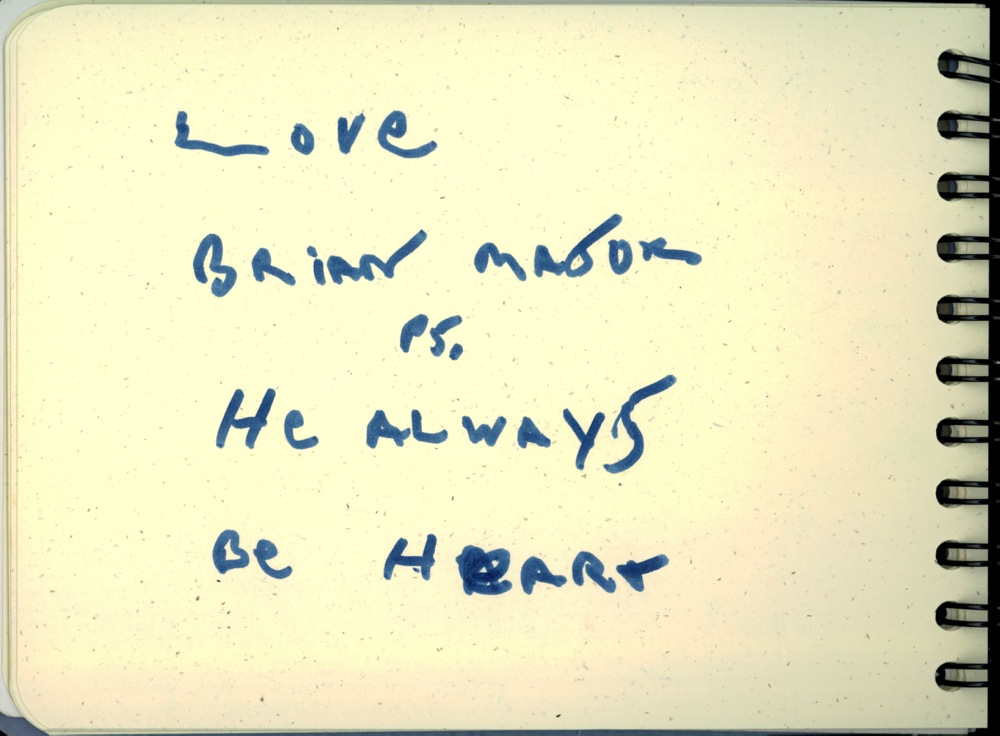 Love
BRiAN MAJOR
PS.
He ALWAYS
Be HeART